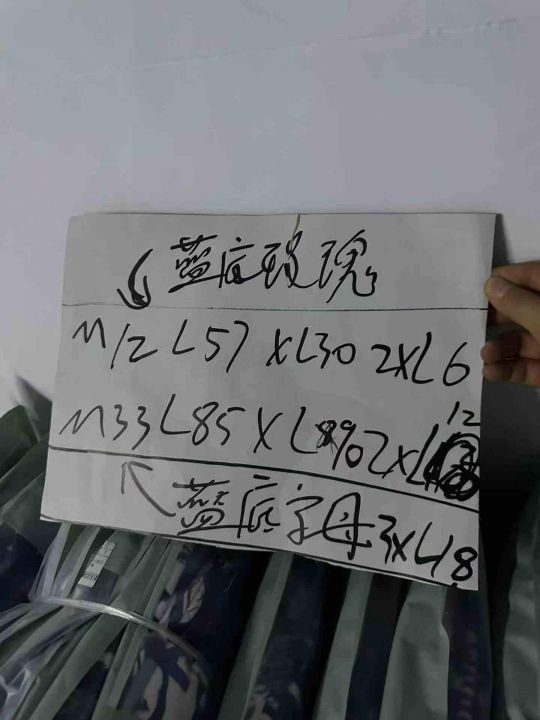 蓝底玫瑰
M12 L57 XL30 2XL6
M33 L85 XL90 2XL12
蓝底字母 3XL18